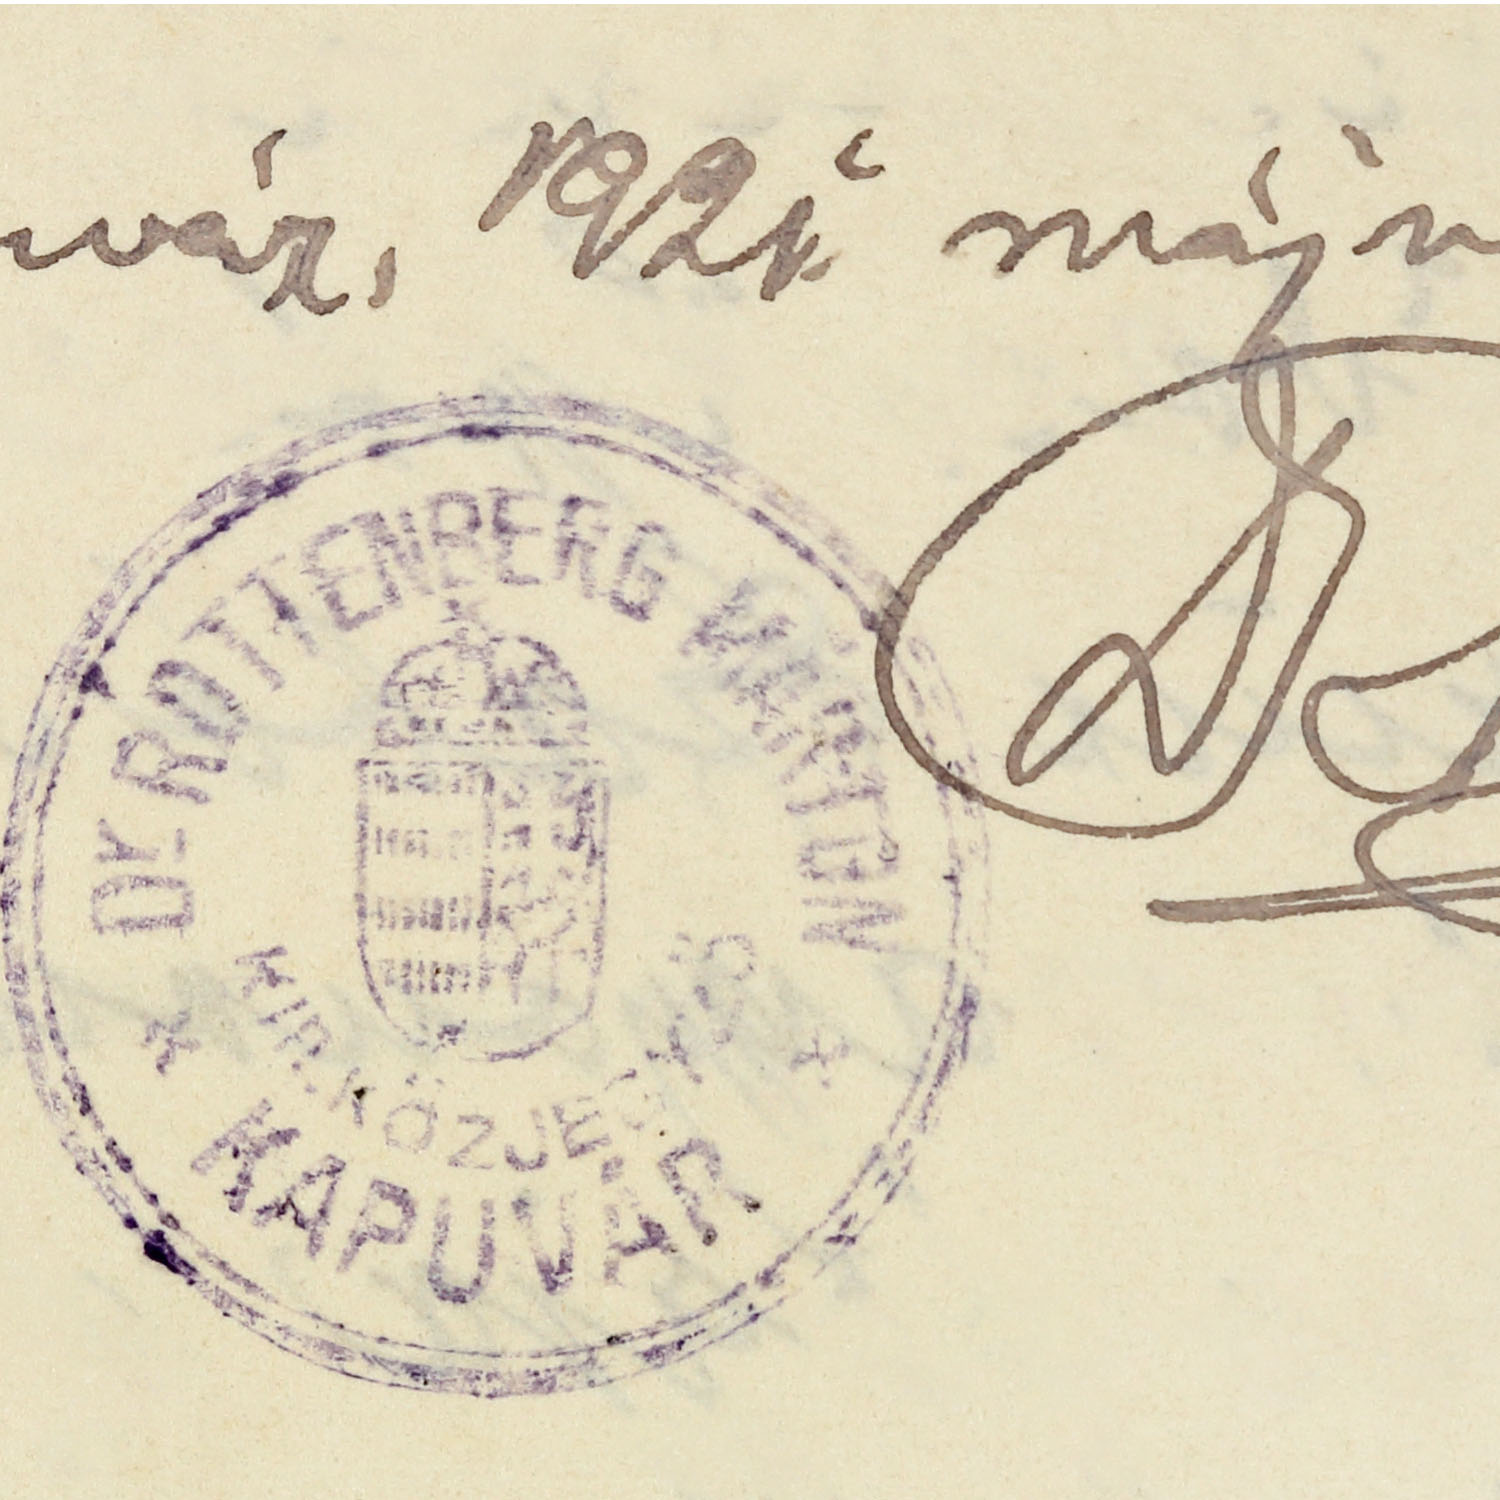 uvár, 1921 máju
DR ROTTENBERG MÁRTON
KIR. KÖZJEGYZŐ
KAPUVÁR